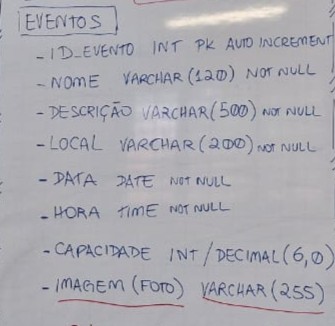 EVENTOS
- ID_EVENTO INT PK AUTO INCREMENT
- NOME VARCHAR(120) NOT NULL
- DESCRIÇÃO VARCHAR(500) NOT NULL
- LOCAL VARCHAR(200) NOT NULL
- DATA DATE NOT NULL
- HORA TIME NOT NULL
- CAPACIDADE INT/DECIMAL(6,0)
- IMAGEM (FOTO) VARCHAR(255)